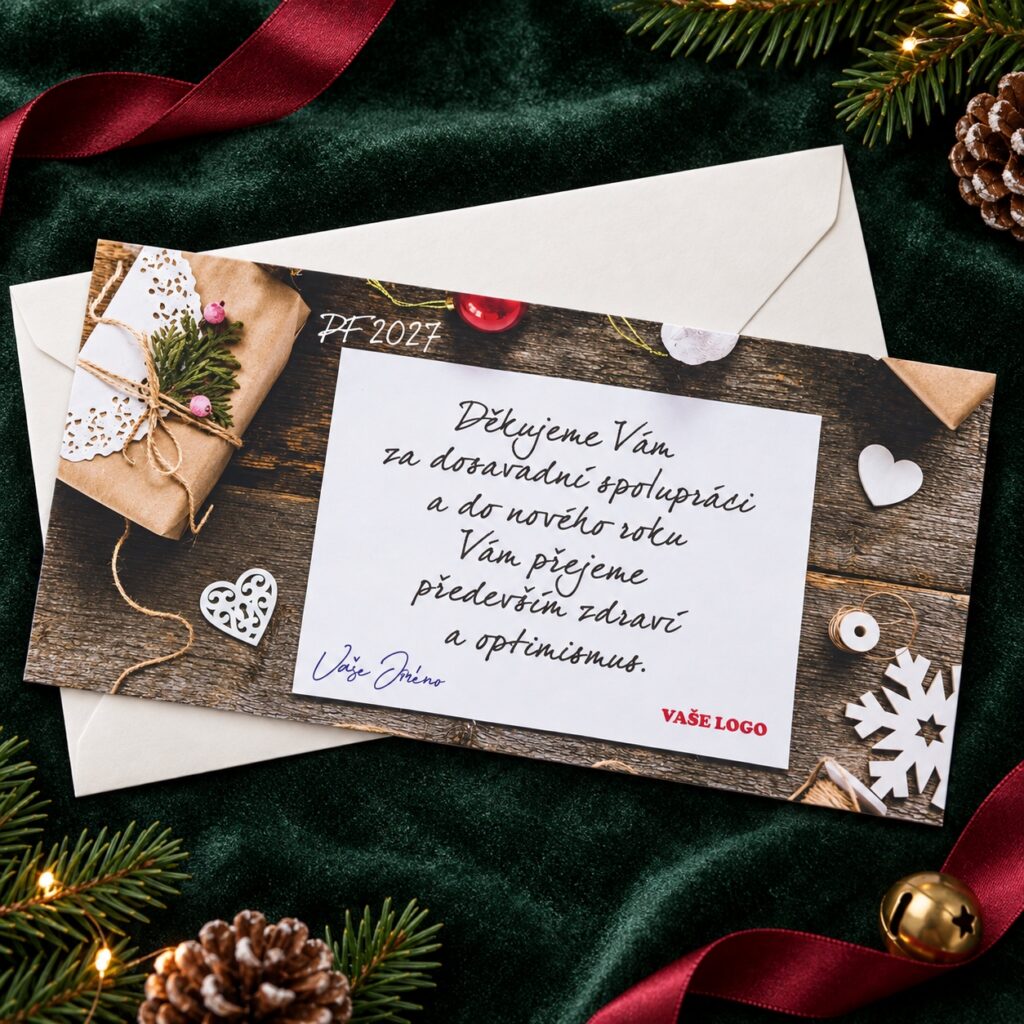 PF 2027
Děkujeme Vám
za dosavadní spolupráci
a do nového roku
Vám přejeme
především zdraví
a optimismus.
Vaše Jméno
VAŠE LOGO